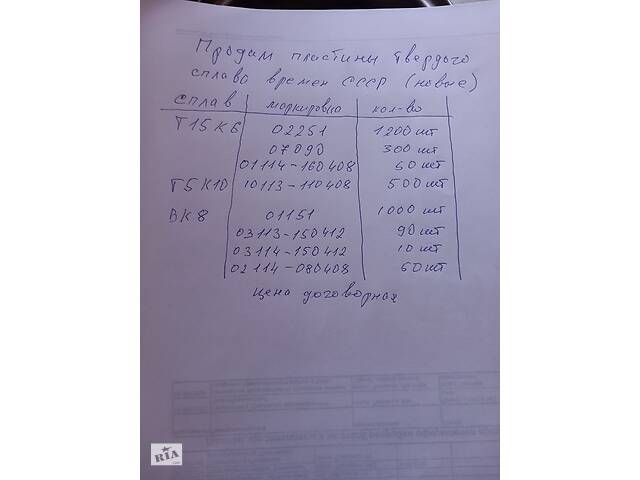 Продам пластины твердого
сплава времен СССР (новые)
сплав маркировка кол-во
Т15К6 02251 1200 шт
07090 300 шт
01114-160408 50 шт
Т5К10 10113-110408 500 шт
ВК8 01151 1000 шт
03113-150412 90 шт
03114-150412 10 шт
02114-080408 60 шт
цена договорная
RIA.com